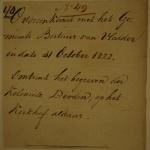 N. 49
Overeenkomst met het Ge-
meente Bestuur van Vledder
in dato 21 October 1822.
Omtrent het begraven der
Kolonie Dooden, op het
Kerkhof aldaar.